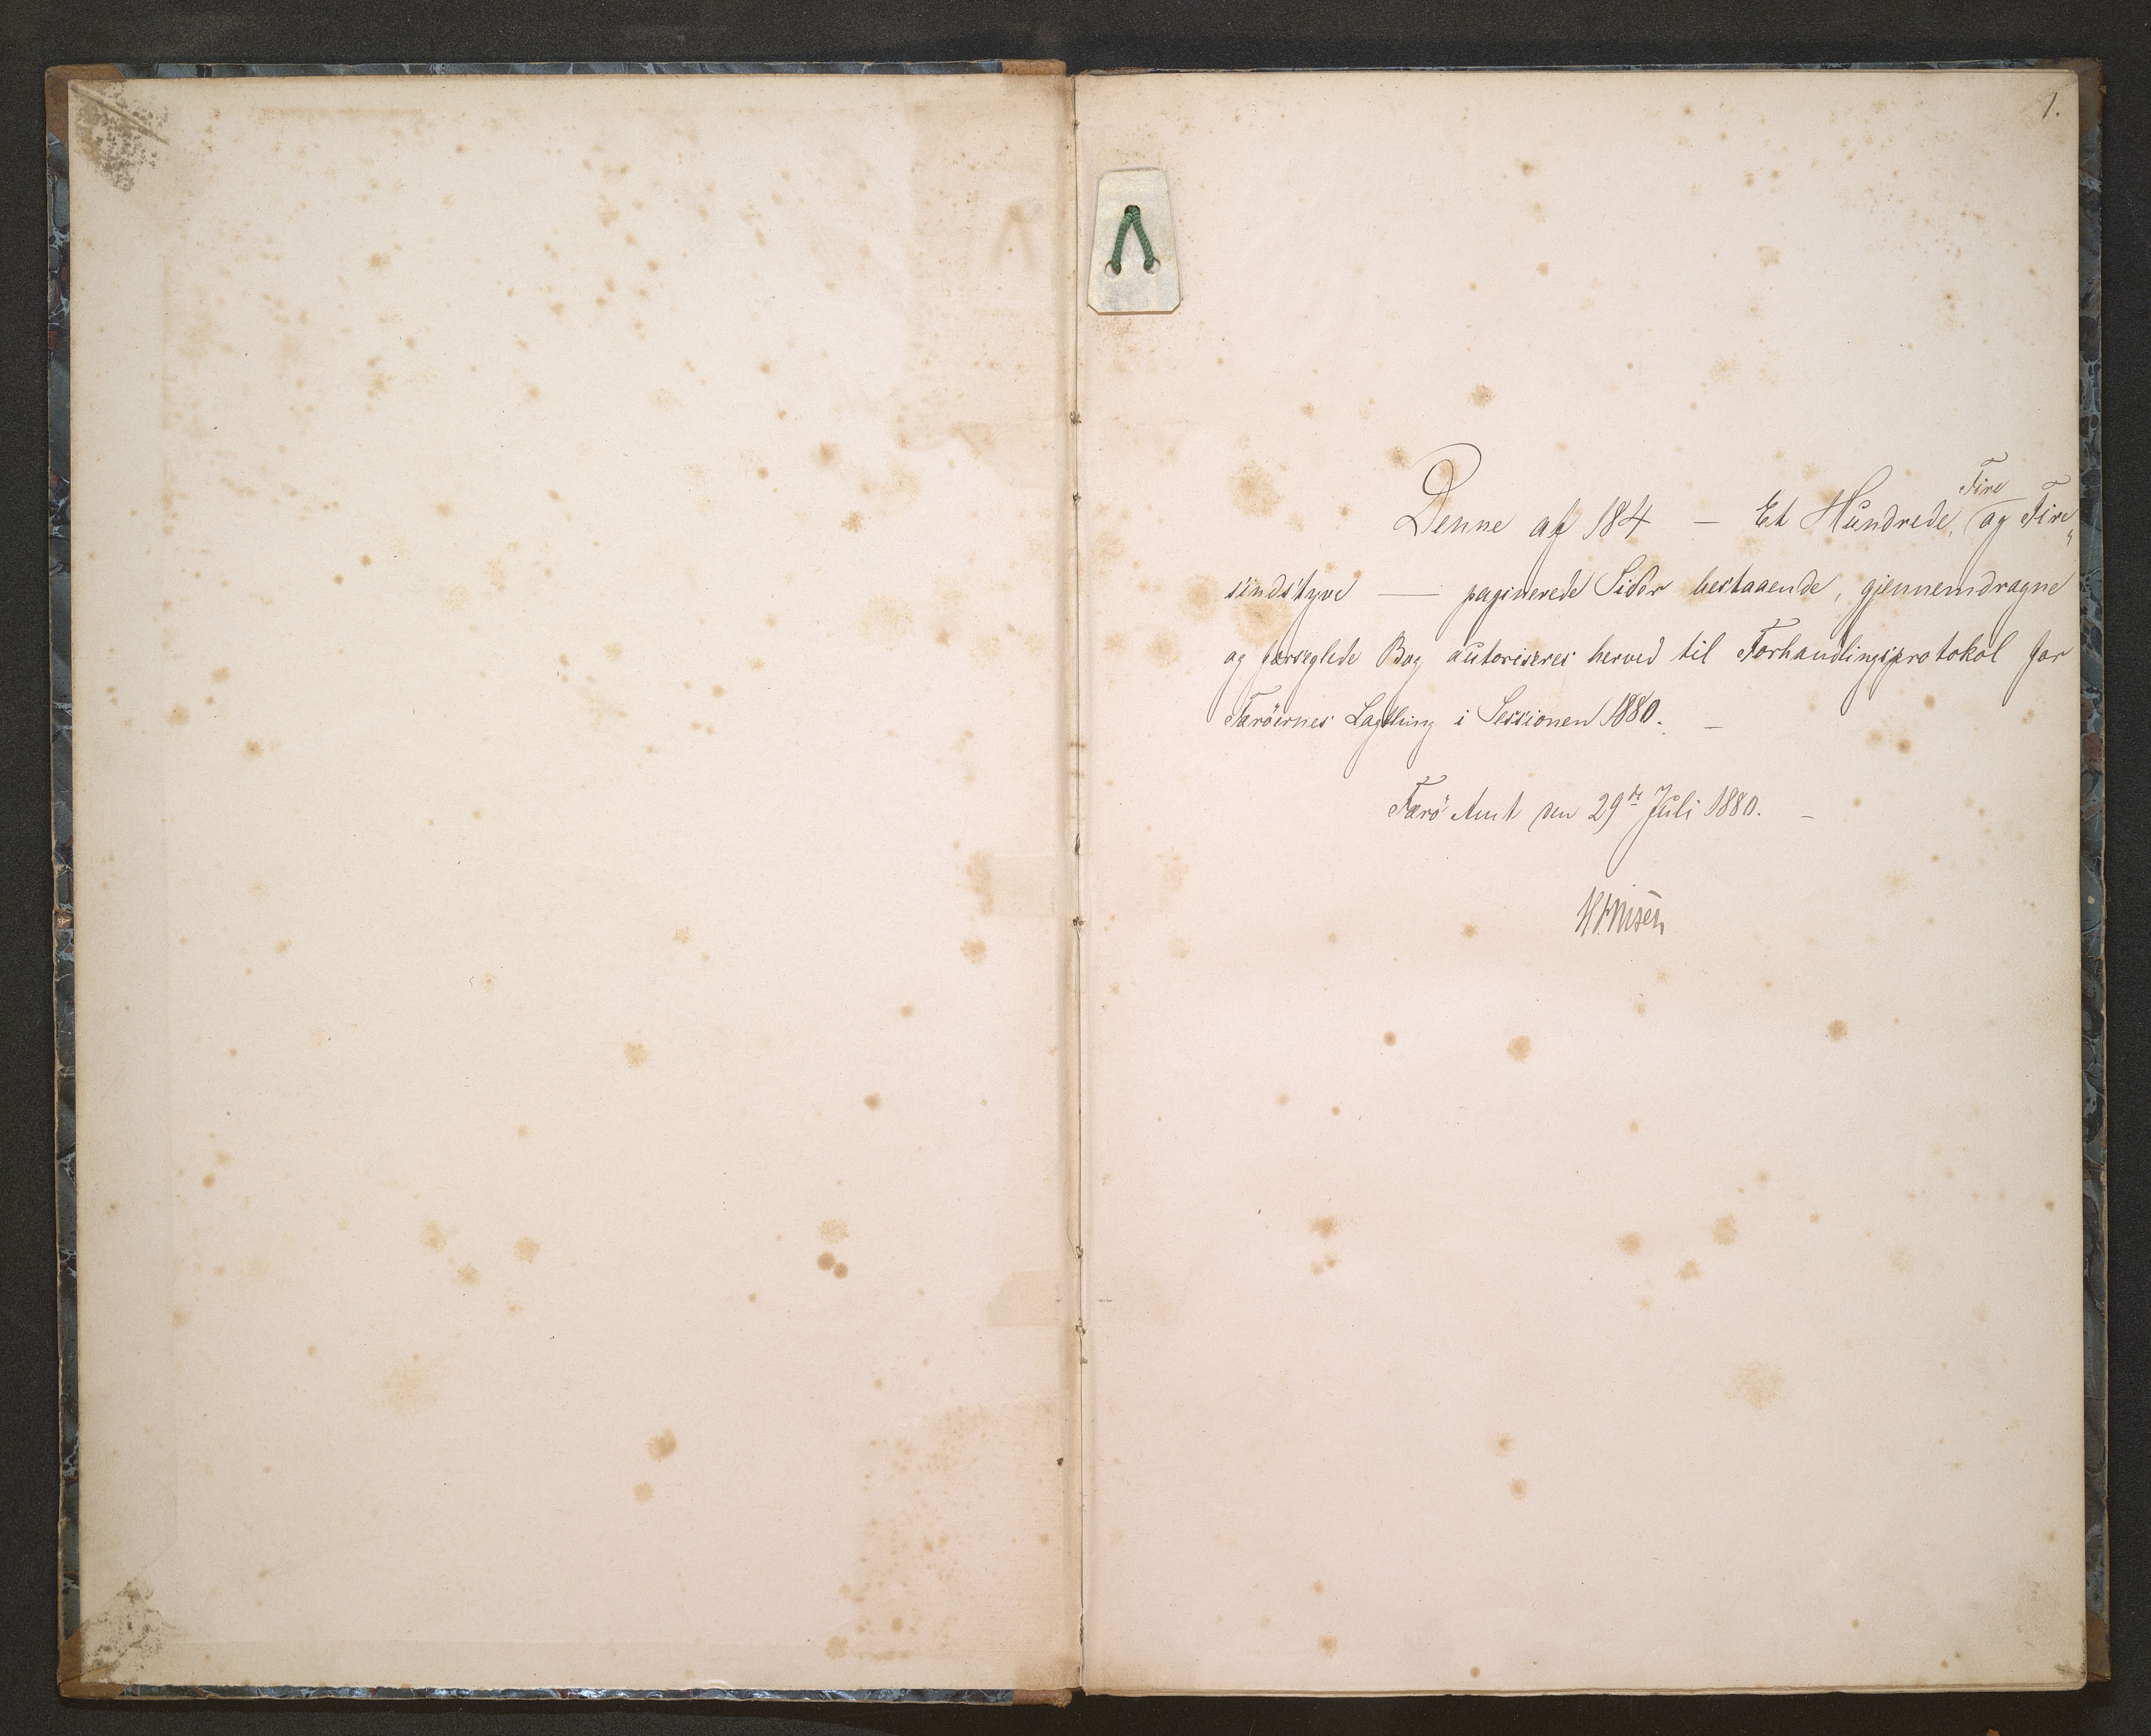 1.
Denne af 184 — Et Hundrede, Fire og Fire„
sindstyve — paginerede Sider bestaaende, gjennemdragne
og forseglede Bog autoriseres herved til Forhandlingsprotokol for
Færöernes Lagthing i Sessionen 1880. —
Færö Amt den 29de Juli 1880. —
HFinsen